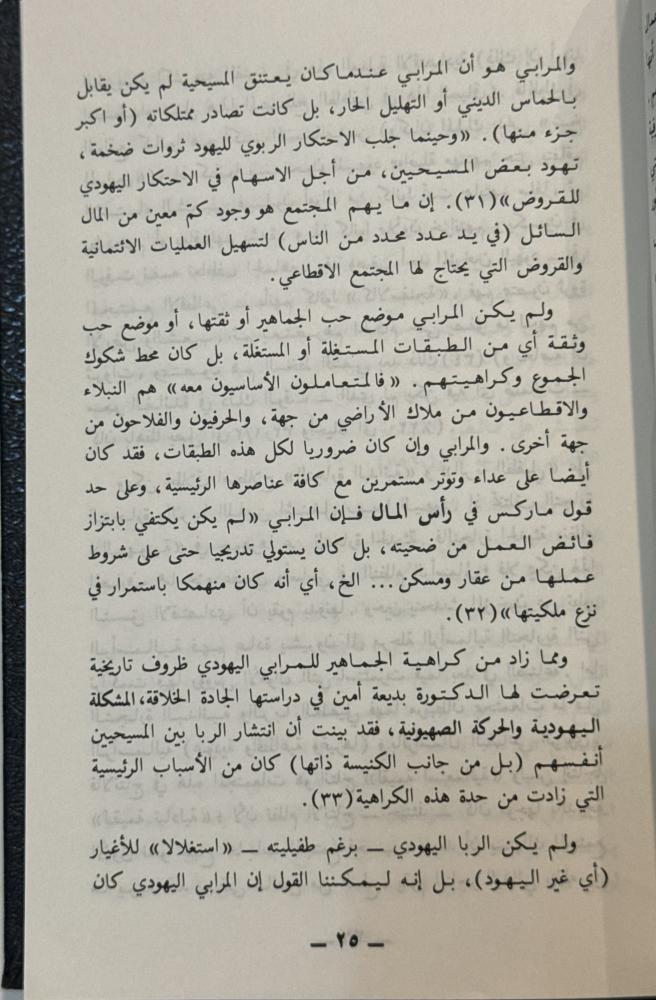 والمرابي هو أن المرابي عندما كان يعتنق المسيحية لم يكن يقابل
بالحماس الديني أو التهليل الحار، بل كانت تصادر ممتلكاته (أو اكبر
جزء منها). «وحينما جلب الاحتكار الربوي لليهود ثروات ضخمة،
تهود بعض المسيحيين، من أجل الاسهام في الاحتكار اليهودي
للقروض»(٣١). إن ما يهم المجتمع هو وجود كمّ معين من المال
السائل (في يد عدد محدد من الناس) لتسهيل العمليات الائتمانية
والقروض التي يحتاج لها المجتمع الاقطاعي.
ولم يكن المرابي موضع حب الجماهير أو ثقتها، أو موضع حب
وثقة أي من الطبقات المستغِلة أو المستغَلة، بل كان محط شكوك
الجموع وكراهيتهم. «فالمتعاملون الأساسيون معه» هم النبلاء
والاقطاعيون من ملاك الأراضي من جهة، والحرفيون والفلاحون من
جهة أخرى. والمرابي وإن كان ضروريا لكل هذه الطبقات، فقد كان
أيضا على عداء وتوتر مستمرين مع كافة عناصرها الرئيسية، وعلى حد
قول ماركس في رأس المال فإن المرابي «لم يكن يكتفي بابتزاز
فائض العمل من ضحيته، بل كان يستولي تدريجيا حتى على شروط
عملها من عقار ومسكن... الخ، أي أنه كان منهمكا باستمرار في
نزع ملكيتها»(٣٢).
ومما زاد من كراهية الجماهير للمرابي اليهودي ظروف تاريخية
تعرضت لها الدكتورة بديعة أمين في دراستها الجادة الخلاقة، المشكلة
اليهودية والحركة الصهيونية، فقد بينت أن انتشار الربا بين المسيحيين
أنفسهم (بل من جانب الكنيسة ذاتها) كان من الأسباب الرئيسية
التي زادت من حدة هذه الكراهية(٣٣).
ولم يكن الربا اليهودي ــ برغم طفيليته ــ «استغلالا» للأغيار
(أي غير اليهود)، بل إنه ليمكننا القول إن المرابي اليهودي كان
ــ ٢٥ ــ